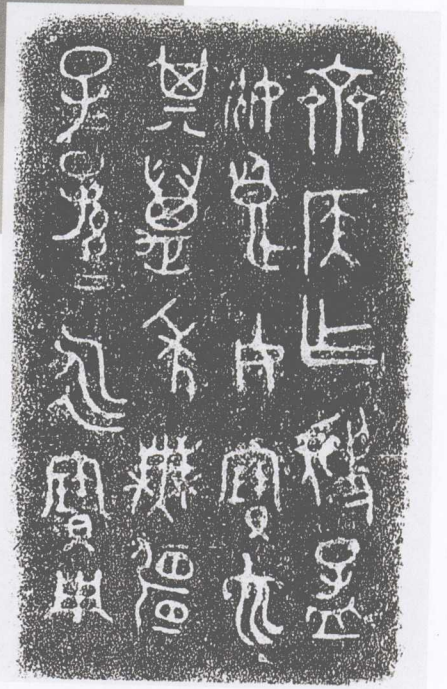 齊侯乍虢孟
姬良女寶它
其萬年無疆
子子孫孫永寶用